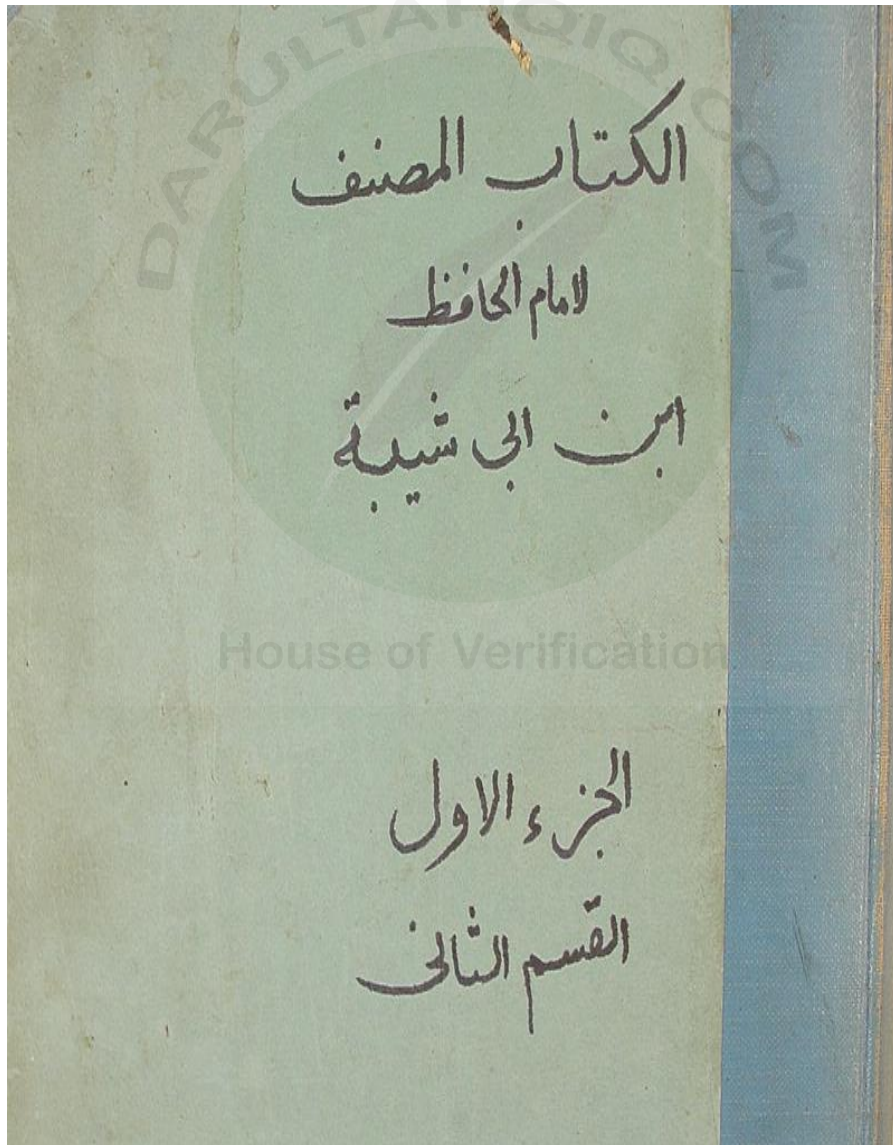 DARULTAHQIQ.COM
الكتاب المصنف
لامام الحافظ
ابن ابي شيبة
House of Verification
الجزء الاول
القسم الثانى